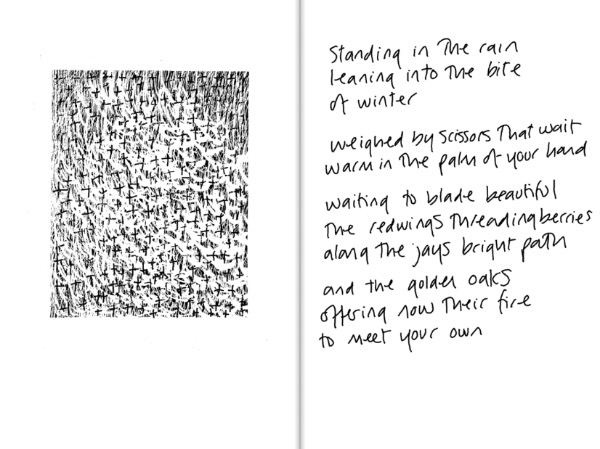 Standing in The rain
leaning into The bite
of winter
weighed by scissors That wait
warm in The palm of your hand
waiting to blade beautiful
The redwings Threading berries
along The jays bright path
and the golden oaks
offering now Their fire
to meet your own